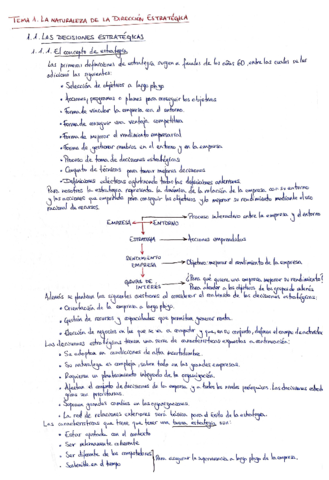 TEMA 1. LA NATURALEZA DE LA DIRECCIÓN ESTRATÉGICA
1.1. LAS DECISIONES ESTRATÉGICAS
1.1.1. El concepto de estrategia
Las primeras definiciones de estrategia surgen a finales de los años 60, entre las cuales
las siguientes:
• Selección de objetivos a largo plazo
• Acciones, programas o planes para conseguir los objetivos
• Forma de vincular la empresa con el entorno
• Forma de conseguir una ventaja competitiva
• Forma de mejorar el rendimiento empresarial
• Forma de gestionar cambios en el entorno y en la empresa
• Proceso de toma de decisiones estratégicas
• Conjunto de técnicas para tomar mejores decisiones
• Definiciones eclécticas
Para nosotros la estrategia representa la dinámica de la relación de la empresa con su entorno
y las acciones que emprende para conseguir los objetivos y/o mejorar su rendimiento mediante el uso
racional de recursos.
Proceso interactivo entre la empresa y el entorno
EMPRESA ENTORNO
ESTRATEGIA Acciones emprendidas
RENDIMIENTO EMPRESA Objetivo: mejorar el rendimiento de la empresa
GRUPOS DE INTERÉS
¿Para qué quiere una empresa mejorar su rendimiento?
Para atender a los objetivos de los grupos de interés
Además se plantean las siguientes cuestiones al considerar el contenido de las decisiones estratégicas:
• Orientación de la empresa a largo plazo.
• Gestión de recursos y capacidades que permitan generar renta.
• Elección de negocios en los que se va a competir y que, en su conjunto, definen el campo de actividad
Las decisiones estratégicas tienen una serie de características expuestas a continuación:
• Se adoptan en condiciones de alta incertidumbre.
• Su naturaleza es compleja, sobre todo en las grandes empresas.
• Requieren un planteamiento integrado de la organización.
• Afectan al conjunto de decisiones de la empresa y a todos los niveles
son prioritarias.
• Suponen grandes cambios en las organizaciones.
• La red de relaciones exteriores será básica para el éxito de la estrategia.
Las características que tiene que tener una buena estrategia son:
• Estar ajustada con el contexto
• Ser internamente coherente
• Ser diferente de los competidores
• Sostenible en el tiempo
Para asegurar la supervivencia a largo plazo de la empresa.